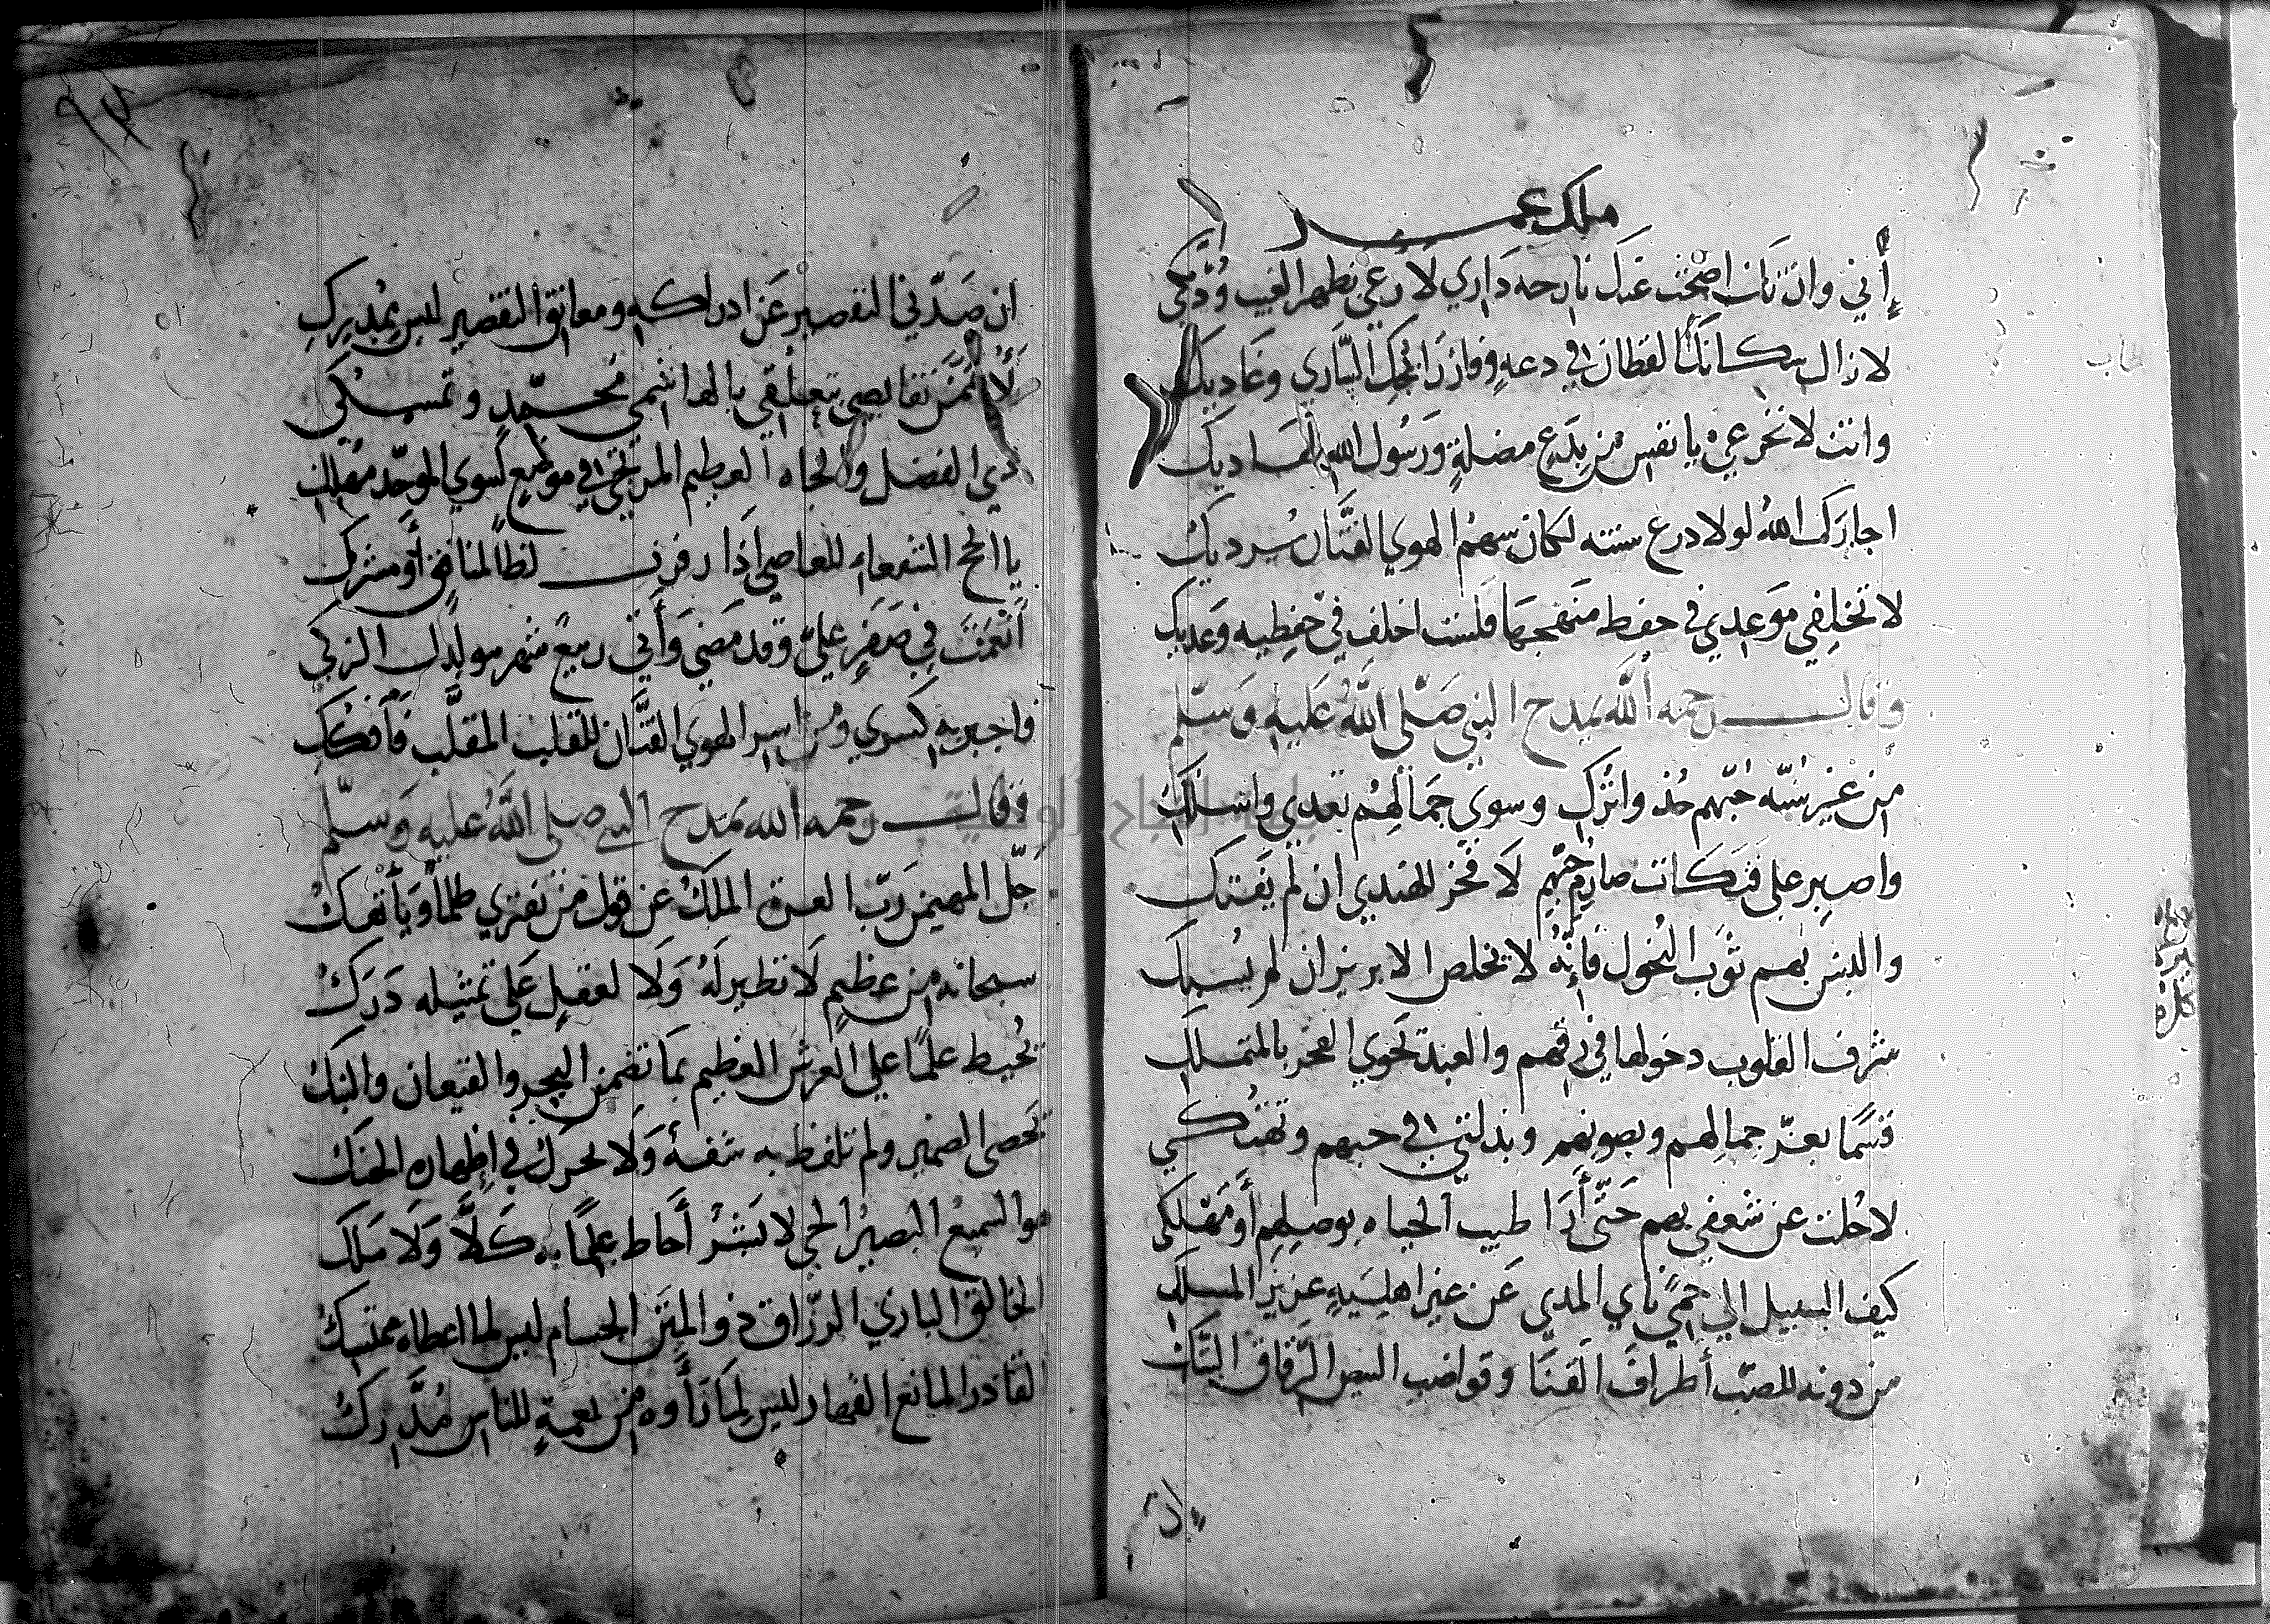 ملك عمر
إني وان تك اضحت عنك نازحه داري لارعى بظهر الغيب ودكي
لا زال سكانك القطان في دعه وفاز رائحك الساري وغاديك
وانت لا تخرعي يا نفس من بدع مضلة ورسول الله هاديك
اجارك الله لولا درع سنته لكان سهم الهوي الفتان يرديك
لا تخلفي موعدي في حفظ منهجها فلست اخلف في حفظيه وعديك
وقال رحمه الله يمدح النبي صلى الله عليه وسلم
من غير سنه حبهم خذ واترك وسوي جمالهم تعدي واسلك
واصبر على فتكات صارم حبهم لا فخر للهندي ان لم يفتك
والبس بهم ثوب النحول فإنه لا يخلص الابريز ان لم يسبك
شرف القلوب دخولها في رقهم والعبد يحوي الفخر بالمتملك
قسما بعز جمالهم وبصونهم وبذلتي في حبهم وتهتكي
لا حلت عن شعفي بهم حتى أرا طيب الحياه بوصلهم أو مهلكي
كيف السبيل الي حمى ناي المدي عن غير اهليه عزيز المسلك
من دونه للصب أطراف القنا وقواضب البيض الرقاق البتك
ان صدني التقصير عن ادراكه ومعانق التقصير ليس بمدرك
لأتممن نقايصي بتعلقي بالهاشمي محمد وتمسكي
ذي الفضل والجاه العظيم المرتجى في موضع لسوي الموحد مهلك
يا انجح الشفعاء للعاصي اذا زفرت لظا لمنافق أو مشرك
أنعمت في صفر علي وقد مضى وأتى ربيع شهر مولدك الزكي
فاجبر به كسري ومن اسر الهوي الفتان للقلب المقلب فافكك
وقال رحمه الله يمدح النبي صلى الله عليه وسلم
جل المهيمن رب العزة الملك عن قول من يفتري ظلما ويأتفك
سبحانه من عظيم لا نظير له ولا لعقل على تمثيله درك
يحيط علما علي العرش العظيم بما تضمن البحر والقيعان والنبك
يحصى الضمير ولم تلفظ به شفة ولا تحرك في إظهاره الحنك
هو السميع البصير الحي لا بشر أحاط علما به كلا ولا ملك
الخالق الباري الرزاق ذو المنن الجسام ليس لما اعطاه ممتسك
القادر المانع القهار ليس لما زأوه من نعمة للناس مدرك